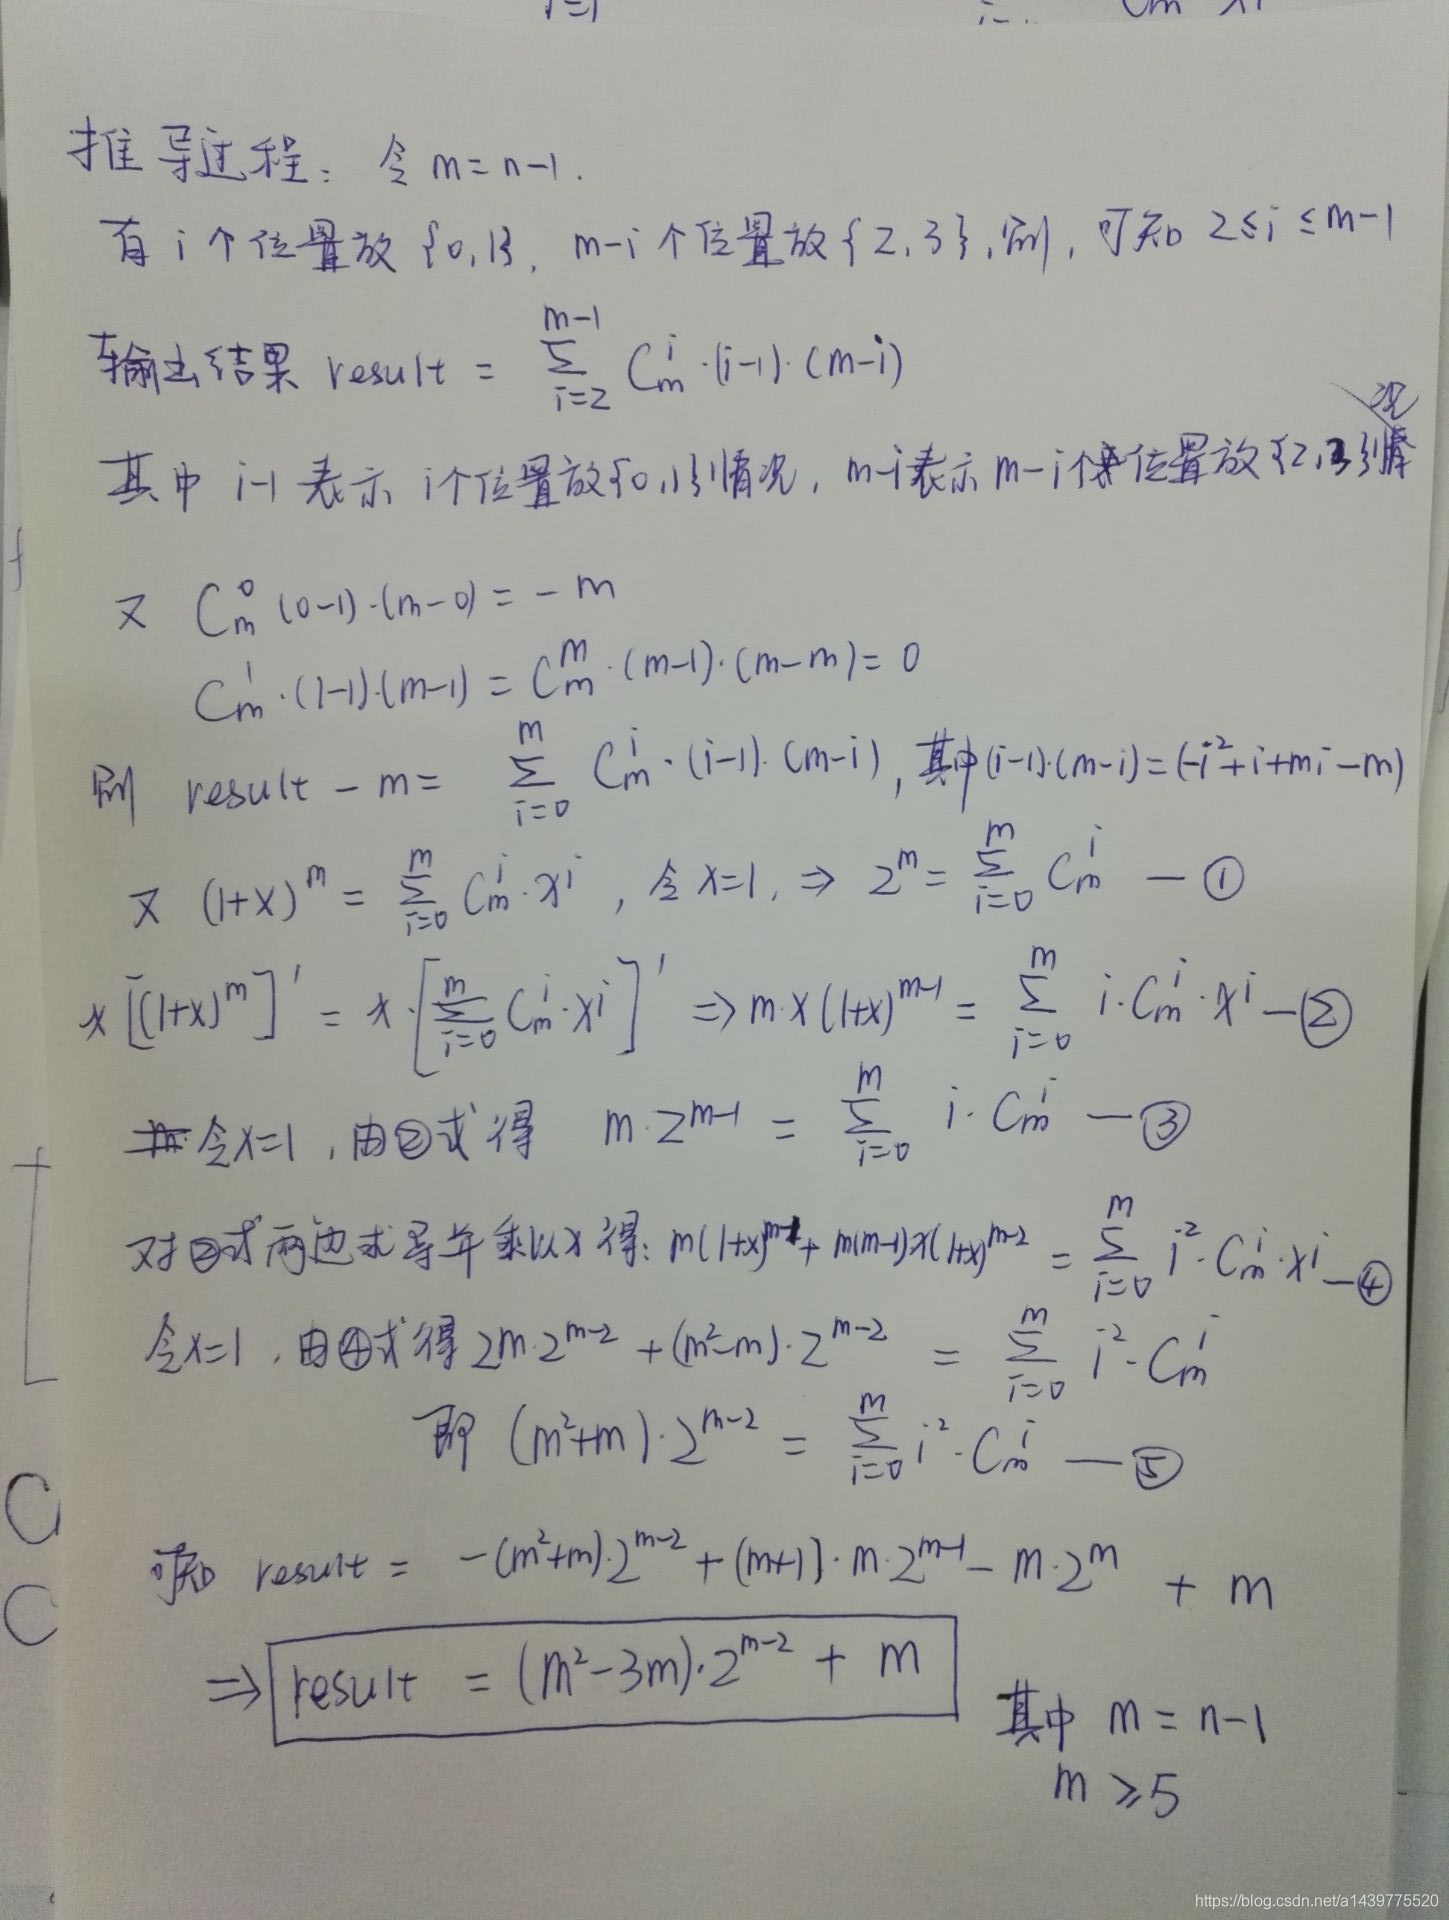 推导过程：令 m = n-1.
有 i 个位置放 {0,1}, m-i 个位置放 {2,3}, 则, 可知 2≤i≤m-1
输出结果 result = \sum_{i=2}^{m-1} C_m^i·(i-1)·(m-i)
其中 i-1 表示 i个位置放{0,1}情况, m-i表示 m-i个位置放{2,3}情况
又 C_m^0 (0-1)·(m-0) = -m
C_m^1·(1-1)·(m-1) = C_m^m·(m-1)·(m-m) = 0
则 result - m = \sum_{i=0}^{m} C_m^i·(i-1)·(m-i), 其中(i-1)·(m-i)=(-i²+i+mi-m)
又 (1+x)^m = \sum_{i=0}^{m} C_m^i·x^i, 令 x=1, ⇒ 2^m = \sum_{i=0}^{m} C_m^i — ①
x[(1+x)^m]' = x·[\sum_{i=0}^{m} C_m^i·x^i]' ⇒ m·x(1+x)^{m-1} = \sum_{i=0}^{m} i·C_m^i·x^i — ②
令x=1, 由②式得 m·2^{m-1} = \sum_{i=0}^{m} i·C_m^i — ③
对②式两边求导并乘以x得: m(1+x)^{m-1} + m(m-1)x(1+x)^{m-2} = \sum_{i=0}^{m} i²·C_m^i·x^i — ④
令x=1, 由④式得 2m·2^{m-2} + (m²-m)·2^{m-2} = \sum_{i=0}^{m} i²·C_m^i
即 (m²+m)·2^{m-2} = \sum_{i=0}^{m} i²·C_m^i — ⑤
可知 result = -(m²+m)·2^{m-2} + (m+1)·m·2^{m-1} - m·2^m + m
⇒ result = (m²-3m)·2^{m-2} + m
其中 m = n-1
m ≥ 5
https://blog.csdn.net/a1439775520